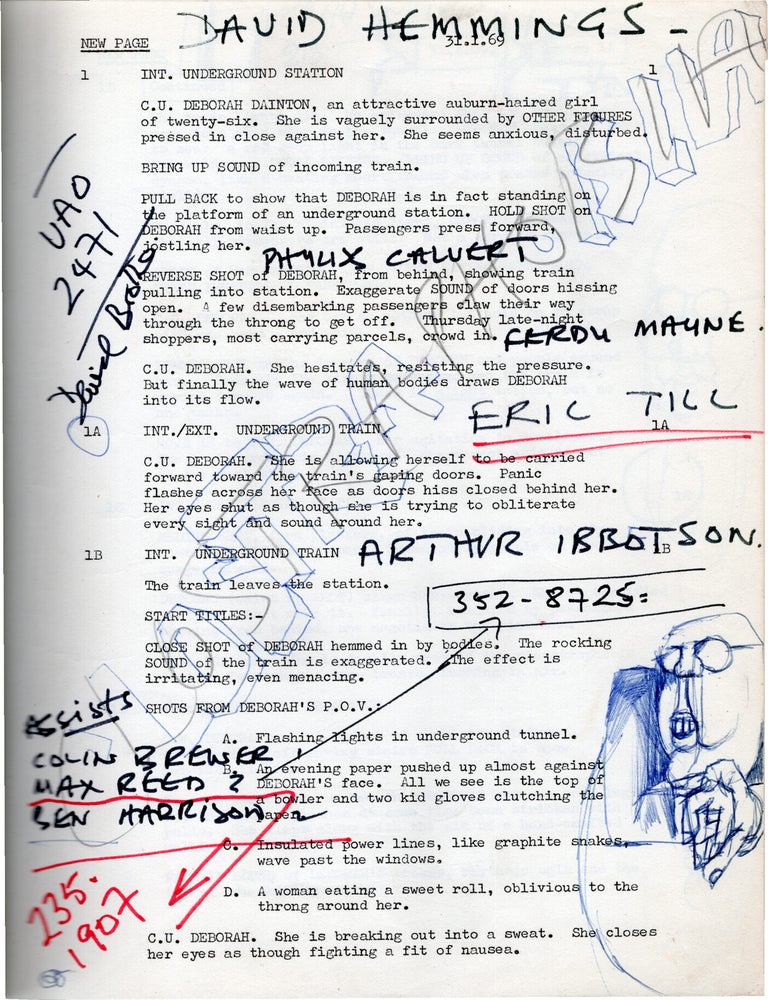 DAVID HEMMINGS -
NEW PAGE
31.1.69
1 INT. UNDERGROUND STATION 1
C.U. DEBORAH DAINTON, an attractive auburn-haired girl
of twenty-six. She is vaguely surrounded by OTHER FIGURES
pressed in close against her. She seems anxious, disturbed.
BRING UP SOUND of incoming train.
UAO
2471
David
PULL BACK to show that DEBORAH is in fact standing on
the platform of an underground station. HOLD SHOT on
DEBORAH from waist up. Passengers press forward,
jostling her.
PHYLIS CALVERT
REVERSE SHOT of DEBORAH, from behind, showing train
pulling into station. Exaggerate SOUND of doors hissing
open. A few disembarking passengers claw their way
through the throng to get off. Thursday late-night
shoppers, most carrying parcels, crowd in.
FERDY MAYNE.
C.U. DEBORAH. She hesitates, resisting the pressure.
But finally the wave of human bodies draws DEBORAH
into its flow.
ERIC TILL
1A INT./EXT. UNDERGROUND TRAIN 1A
C.U. DEBORAH. She is allowing herself to be carried
forward toward the train's gaping doors. Panic
flashes across her face as doors hiss closed behind her.
Her eyes shut as though she is trying to obliterate
every sight and sound around her.
1B INT. UNDERGROUND TRAIN 1B
ARTHUR IBBOTSON.
The train leaves the station.
352-8725=
START TITLES:-
CLOSE SHOT of DEBORAH hemmed in by bodies. The rocking
SOUND of the train is exaggerated. The effect is
irritating, even menacing.
Assists
COLIN BREWER
MAX REED ?
BEN HARRISON
SHOTS FROM DEBORAH'S P.O.V.:-
A. Flashing lights in underground tunnel.
B. An evening paper pushed up almost against
DEBORAH'S face. All we see is the top of
a bowler and two kid gloves clutching the
paper.
C. Insulated power lines, like graphite snakes,
wave past the windows.
D. A woman eating a sweet roll, oblivious to the
throng around her.
235.
1907
C.U. DEBORAH. She is breaking out into a sweat. She closes
her eyes as though fighting a fit of nausea.